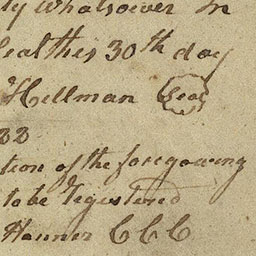 ty whatsoever In
Seal this 30th day
Hellman Seal
33
tion of the foregowing
to be Registered
Hanner CCC